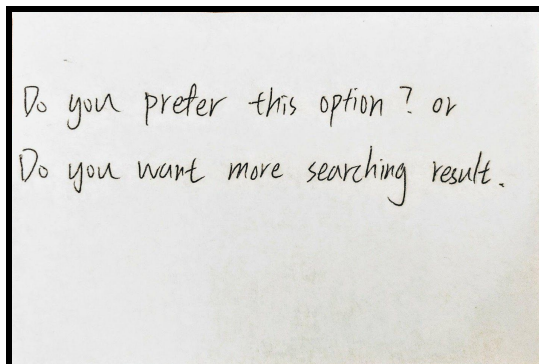 Do you prefer this option? or
Do you want more searching result.